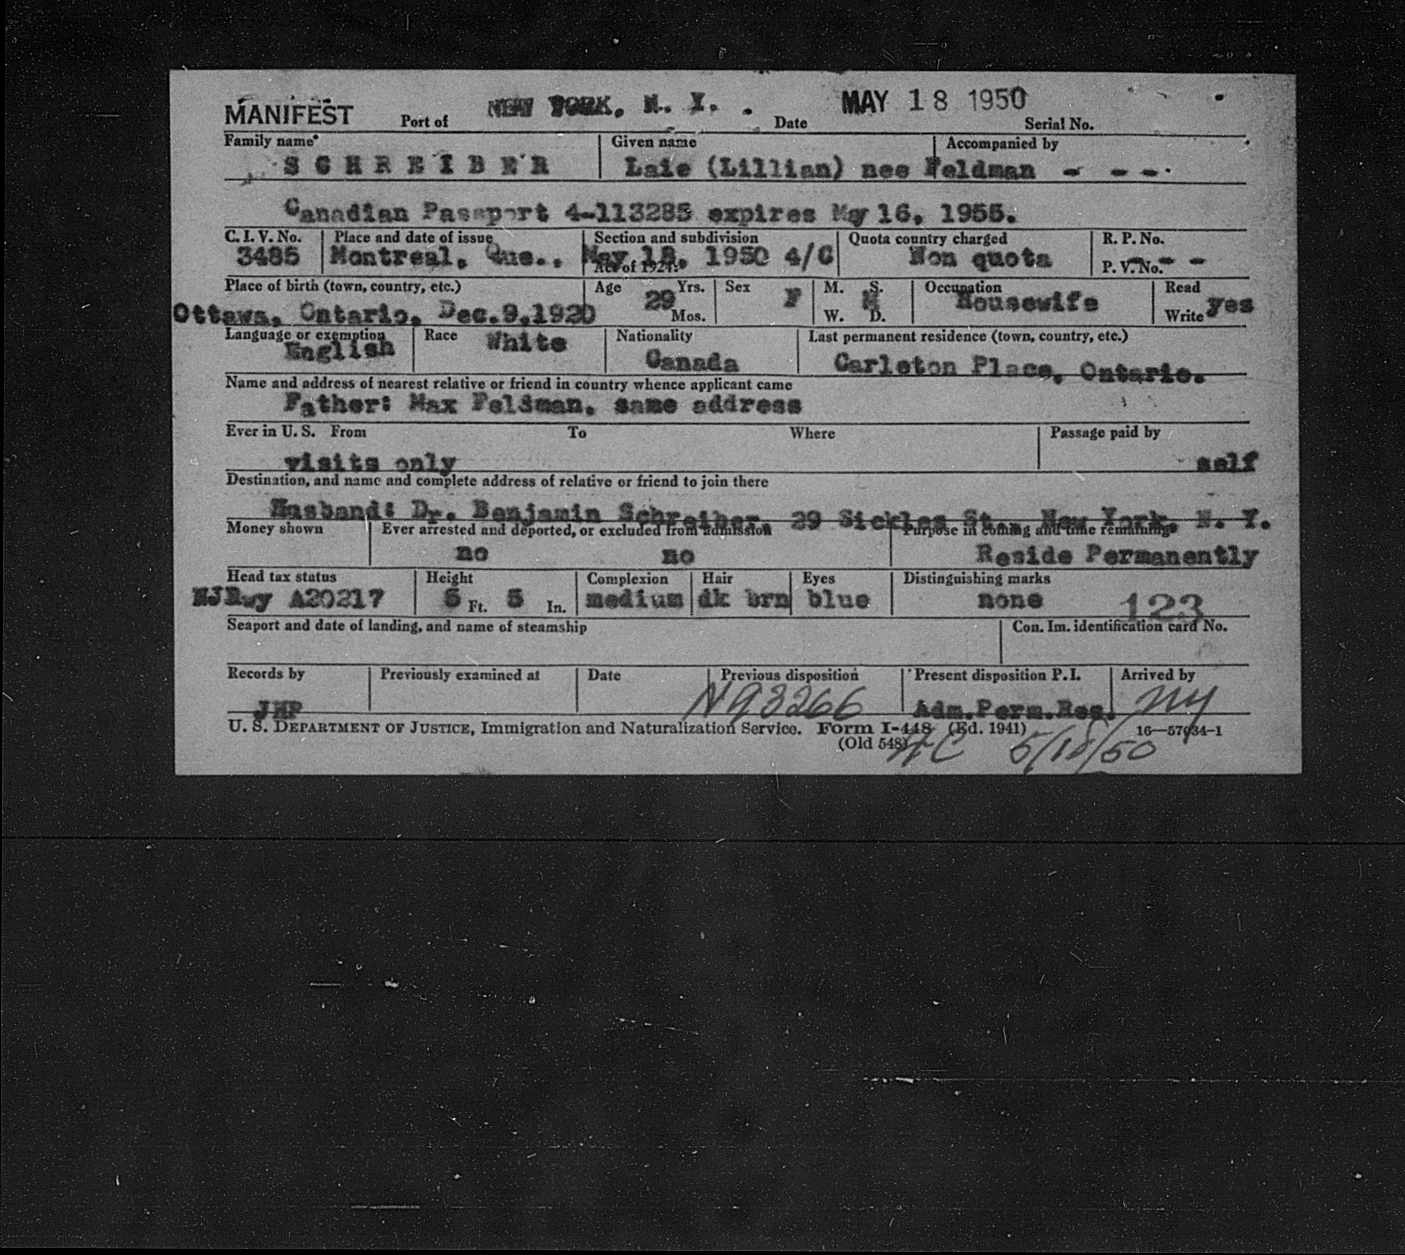 MANIFEST Port of NEW YORK, N. Y. Date MAY 18 1950 Serial No.
Family name Given name Accompanied by
SCHREIBER Laie (Lillian) nee Feldman - - - -
Canadian Passport 4-113285 expires May 16, 1955.
C. I. V. No. Place and date of issue Section and subdivision Quota country charged R. P. No.
3485 Montreal, Que., May 18, 1950 4/C Non quota - -
Act of 1924: P. V. No.
Place of birth (town, country, etc.) Age Yrs. Sex M. S. Occupation Read
Ottawa, Ontario, Dec.9,1920 29 F M Housewife yes
Mos. W. D. Write
Language or exemption Race White Nationality Last permanent residence (town, country, etc.)
English Canada Carleton Place, Ontario.
Name and address of nearest relative or friend in country whence applicant came
Father: Max Feldman, same address
Ever in U. S. From To Where Passage paid by
visits only self
Destination, and name and complete address of relative or friend to join there
Husband: Dr. Benjamin Schreiber, 29 Sickles St., New York, N. Y.
Money shown Ever arrested and deported, or excluded from admission Purpose in coming and time remaining
no no Reside Permanently
Head tax status Height Complexion Hair Eyes Distinguishing marks
A20217 5 Ft. 5 In. medium dk brn blue none 123
Seaport and date of landing, and name of steamship Con. Im. identification card No.
Records by Previously examined at Date Previous disposition Present disposition P. I. Arrived by
JHP Adm.Perm.Res. NY
U. S. DEPARTMENT OF JUSTICE, Immigration and Naturalization Service. Form I-448 (Ed. 1941) 16—57034-1
(Old 548)